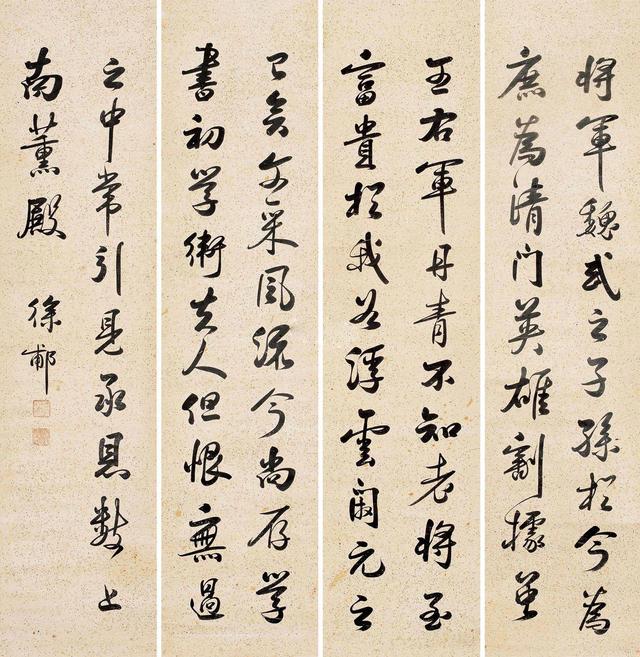 將軍魏武之子孫於今為
庶為清門英雄割據雖
王右軍丹青不知老將至
富貴於我如浮雲開元之
已矣文采風流今尚存學
書初學衛夫人但恨無過
之中常引見承恩數上
南薰殿
徐郙